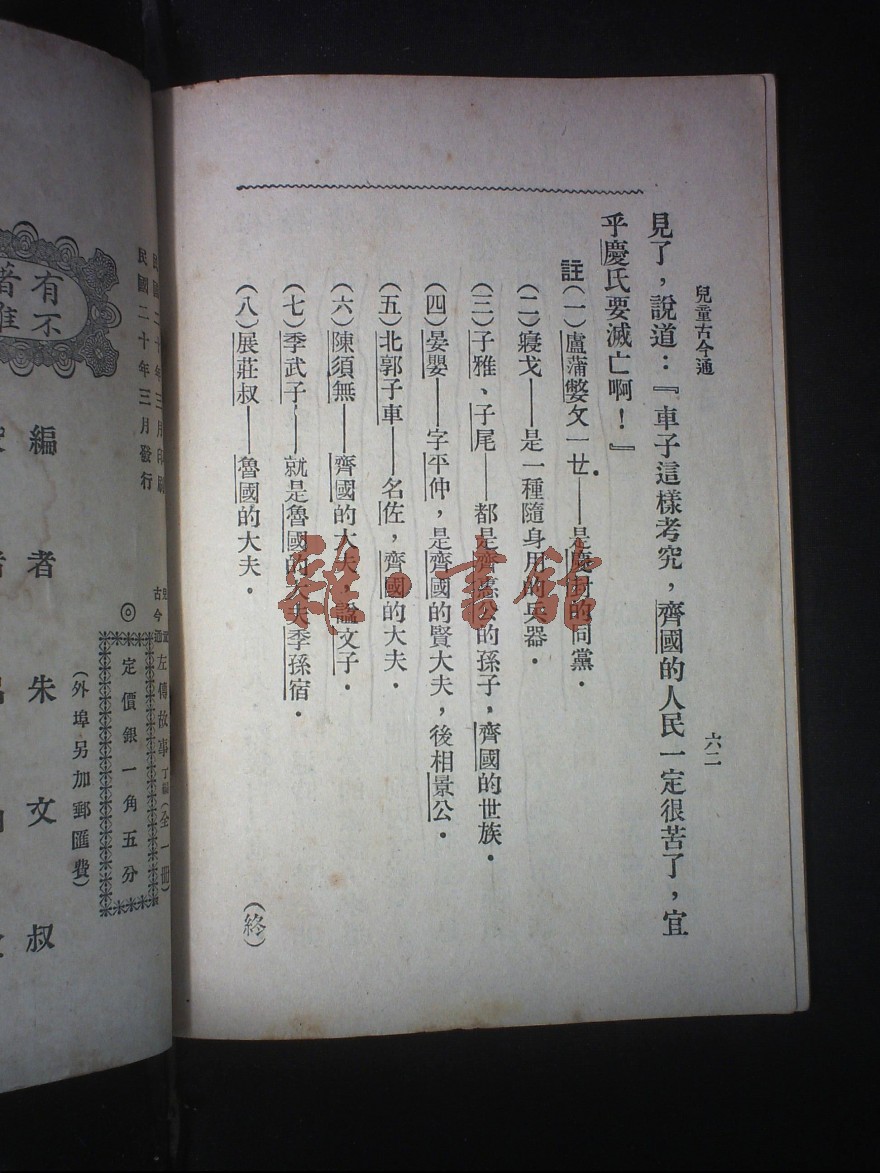 兒童古今通
六二
見了，說道：『車子這樣考究，齊國的人民一定很苦了，宜
乎慶氏要滅亡啊！』
註（一）盧蒲嫳攵一𠀍——是慶封的同黨．
（二）寢戈——是一種隨身用的兵器．
（三）子雅、子尾——都是齊惠公的孫子，齊國的世族．
（四）晏嬰——字平仲，是齊國的賢大夫，後相景公．
（五）北郭子車——名佐，齊國的大夫．
（六）陳須無——齊國的大夫，謚文子．
（七）季武子——就是魯國的大夫季孫宿．
（八）展莊叔——魯國的大夫．
（終）
民國二十年三月印刷
民國二十年三月發行
古今通左傳故事丁編（全一冊）
◎定價銀一角五分
（外埠另加郵匯費）
有不
著准
編者朱文叔